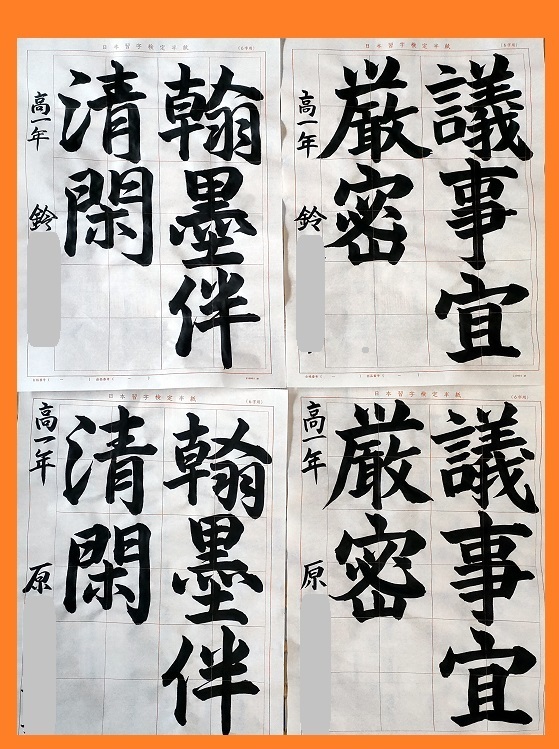 日本習字検定半紙 (6字用)
翰墨伴
清閑
高一年 鈴
日本習字検定半紙 (6字用)
議事宜
厳密
高一年 鈴
日本習字検定半紙 (6字用)
翰墨伴
清閑
高一年 原
日本習字検定半紙 (6字用)
議事宜
厳密
高一年 原